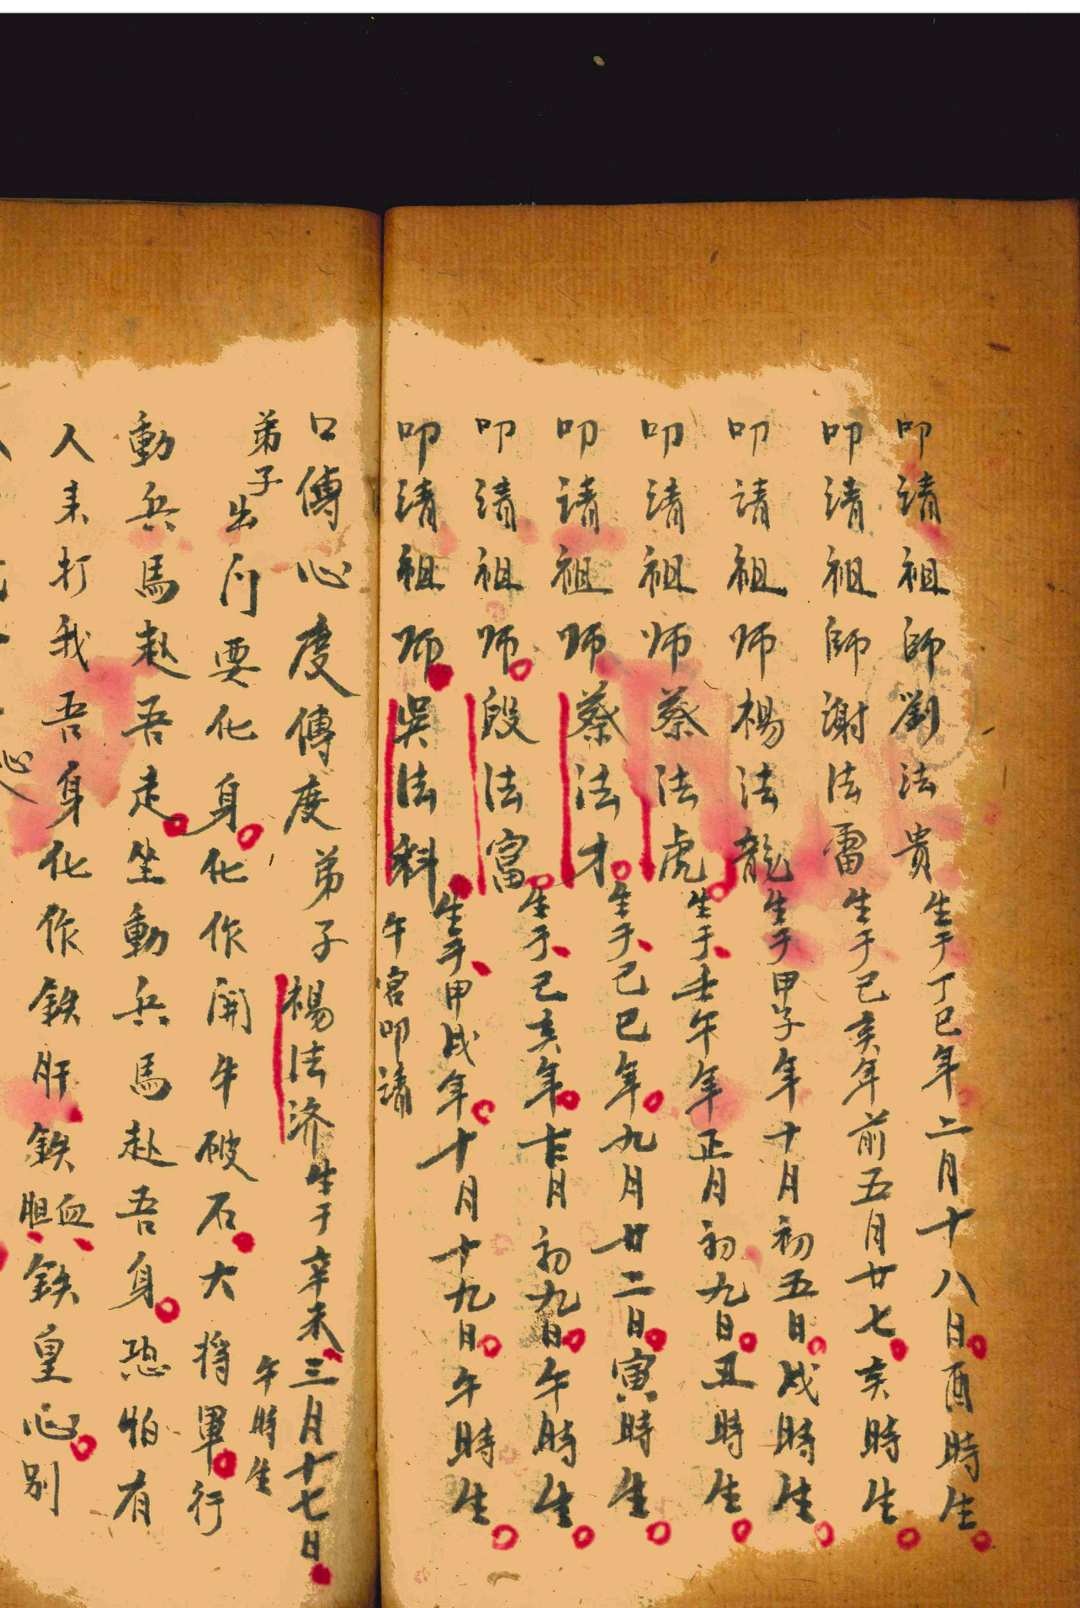 叩請祖師劉法貴生于丁巳年二月十八日酉時生
叩請祖師謝法雷生于己亥年前五月廿七亥時生
叩請祖师楊法龍生于甲子年十月初五日戌時生
叩請祖师蔡法虎生于壬午年正月初九日丑時生
叩請祖师蔡法才生于己巳年九月廿二日寅時生
叩請祖师殷法富生于己亥年吉月初九日午時生
叩請祖师吳法科生于甲戌年十月十九日午時生
午宮叩請
口傳心度傳度弟子楊法济生于辛未三月十七日
午時生
弟子出门要化身化作開牛破石大将軍行
動兵馬赴吾走坐動兵馬赴吾身恐怕有
人来打我吾身化作鉄肝鉄胆血鉄皇心别